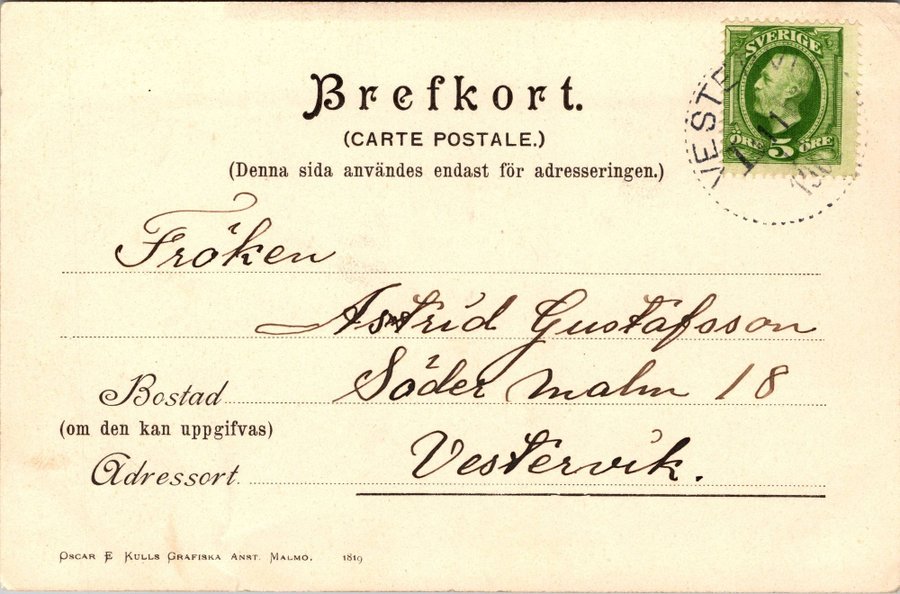 SVERIGE
ÖRE 5 ÖRE
VESTE
11
Brefkort.
(CARTE POSTALE.)
(Denna sida användes endast för adresseringen.)
Fröken
Astrid Gustafsson
Bostad Söder malm 18
(om den kan uppgifvas)
Adressort. Vestervik.
OSCAR E KULLS GRAFISKA ANST. MALMO. 1819